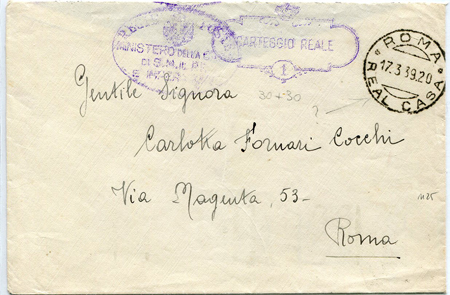 MINISTERO DELLA
DI S.M. IL
CARTEGGIO REALE
1
ROMA
17.3.39.20
REAL CASA
30+30
?
Gentile Signora
Carlotta Fornari Cocchi
Via Magenta, 53-
1125
Roma